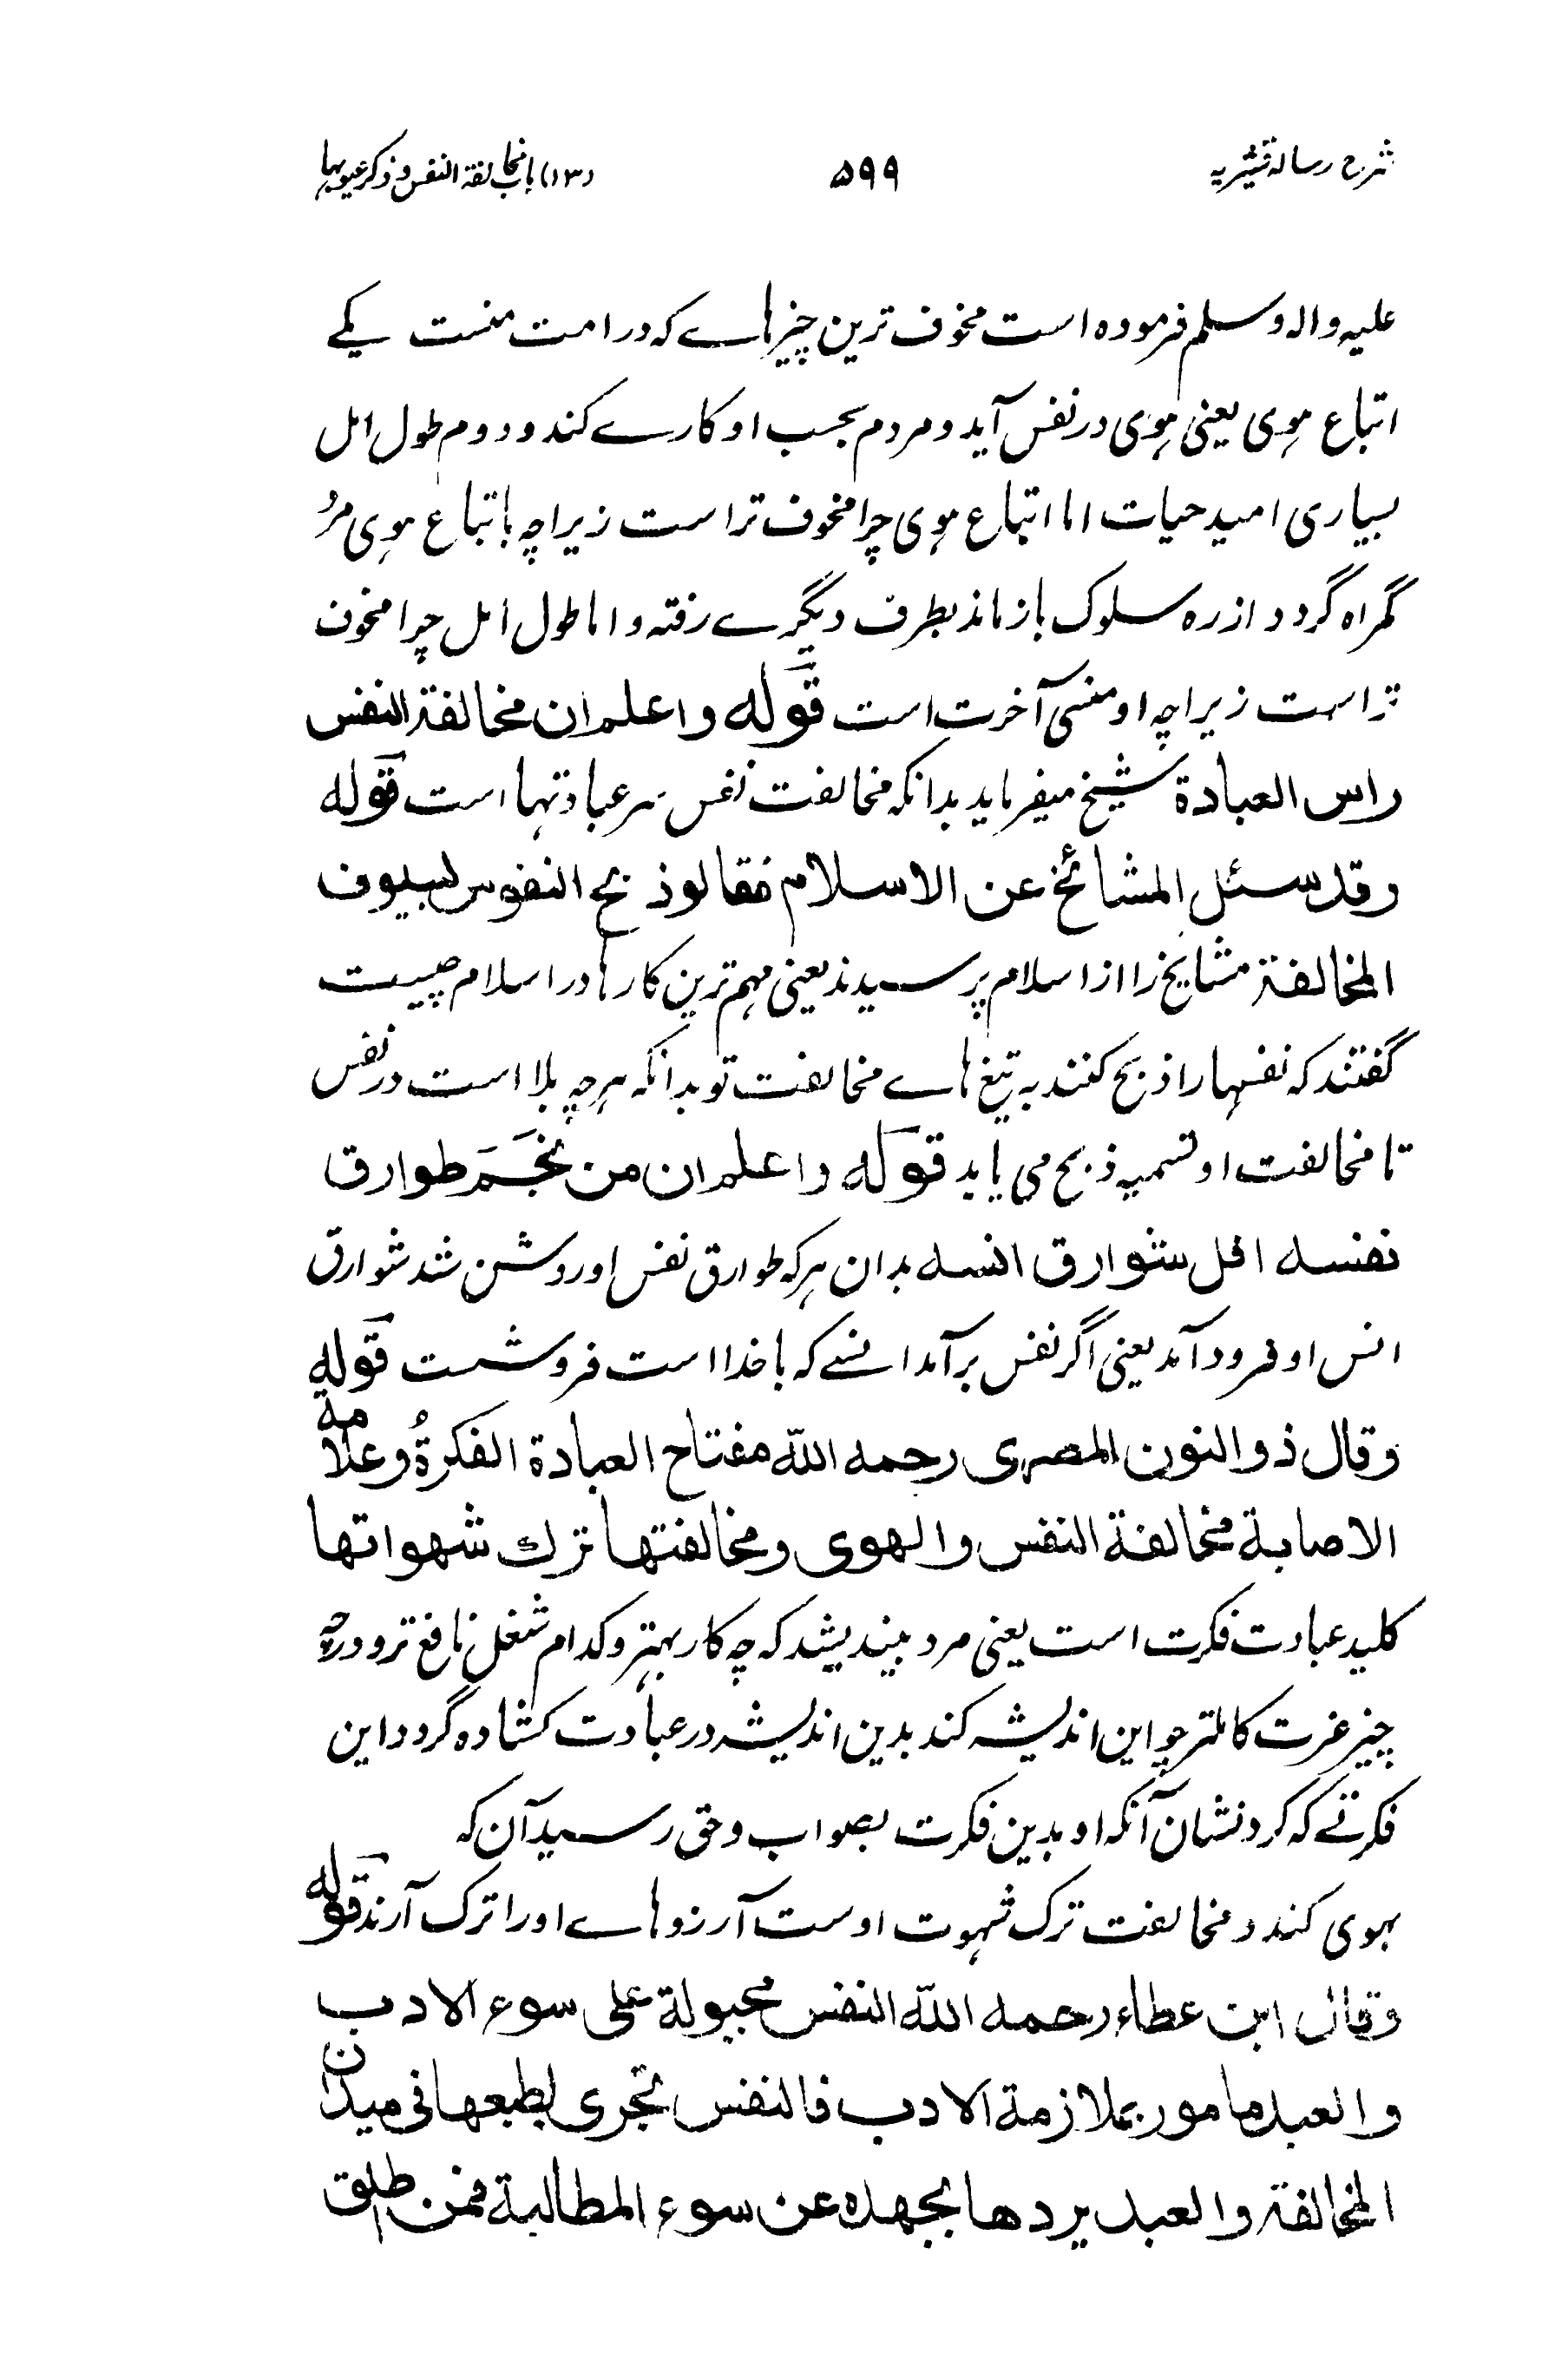 شرح رسالہ قشیریہ ۵۹۹ (۱۳) باب مخالفة النفس و ذکر عیوبها
علیہ والہ وسلم فرمودہ است مخوف ترین چیزہاے کہ در امت منست یکے
اتباع ہوی یعنی ہوی در نفس آید و مردم بحسب او کارے کند و دوم طول امل
بسیاری امید حیات اما اتباع ہوی چرا مخوف تر است زیراچہ باتباع ہوی مرد
گمراہ گردد و از رہ سلوک باز ماند بطرف دیگرے رفتہ و اما طول امل چرا مخوف
تر است زیراچہ او منسی آخرت است قوله واعلم ان مخالفة النفس
راس العبادة شیخ میفرماید بدانکہ مخالفت نفس سر عبادتہا است قوله
وقد سئل المشائخ عن الاسلام فقالوا ذبح النفوس بسیوف
المخالفة مشایخ را از اسلام پرسیدند یعنی مہم ترین کارہا در اسلام چیست
گفتند کہ نفسہا را ذبح کنند بہ تیغ ہاے مخالفت تو بدانکہ ہرچہ بلا است در نفس
تا مخالفت او تسمیہ ذبح می یابد قوله واعلم ان من نجم طوارق
نفسه افل شوارق انسه بدان ہرکہ طوارق نفس او روشن شد شوارق
انس او فرود آمد یعنی اگر نفس برآمد انسے کہ باخدا است فروشست قوله
وقال ذوالنون المصری رحمه الله مفتاح العبادة الفكرةُ وعلامة
الاصابة مخالفة النفس والهوی ومخالفتها ترك شهواتها
کلید عبادت فکرت است یعنی مرد بیندیشد کہ چہ کار بہتر و کدام شغل نافع تر و درچہ
چیز عزت کاملتر چو این اندیشہ کند بدین اندیشہ در عبادت کشادہ گردد این
فکرتے کہ کرد نشان آنکہ او بدین فکرت بصواب و حق رسید آن کہ
بہوی کند و مخالفت ترک شہوت اوست آرزوہاے او را ترک آرند قوله
وقال ابن عطاء رحمه الله النفس مجبولة علی سوء الادب
والعبد مامور بملازمة الادب فالنفس تجری بطبعها فی میدان
المخالفة والعبد یردها بجهده عن سوء المطالبة فمن اطلق